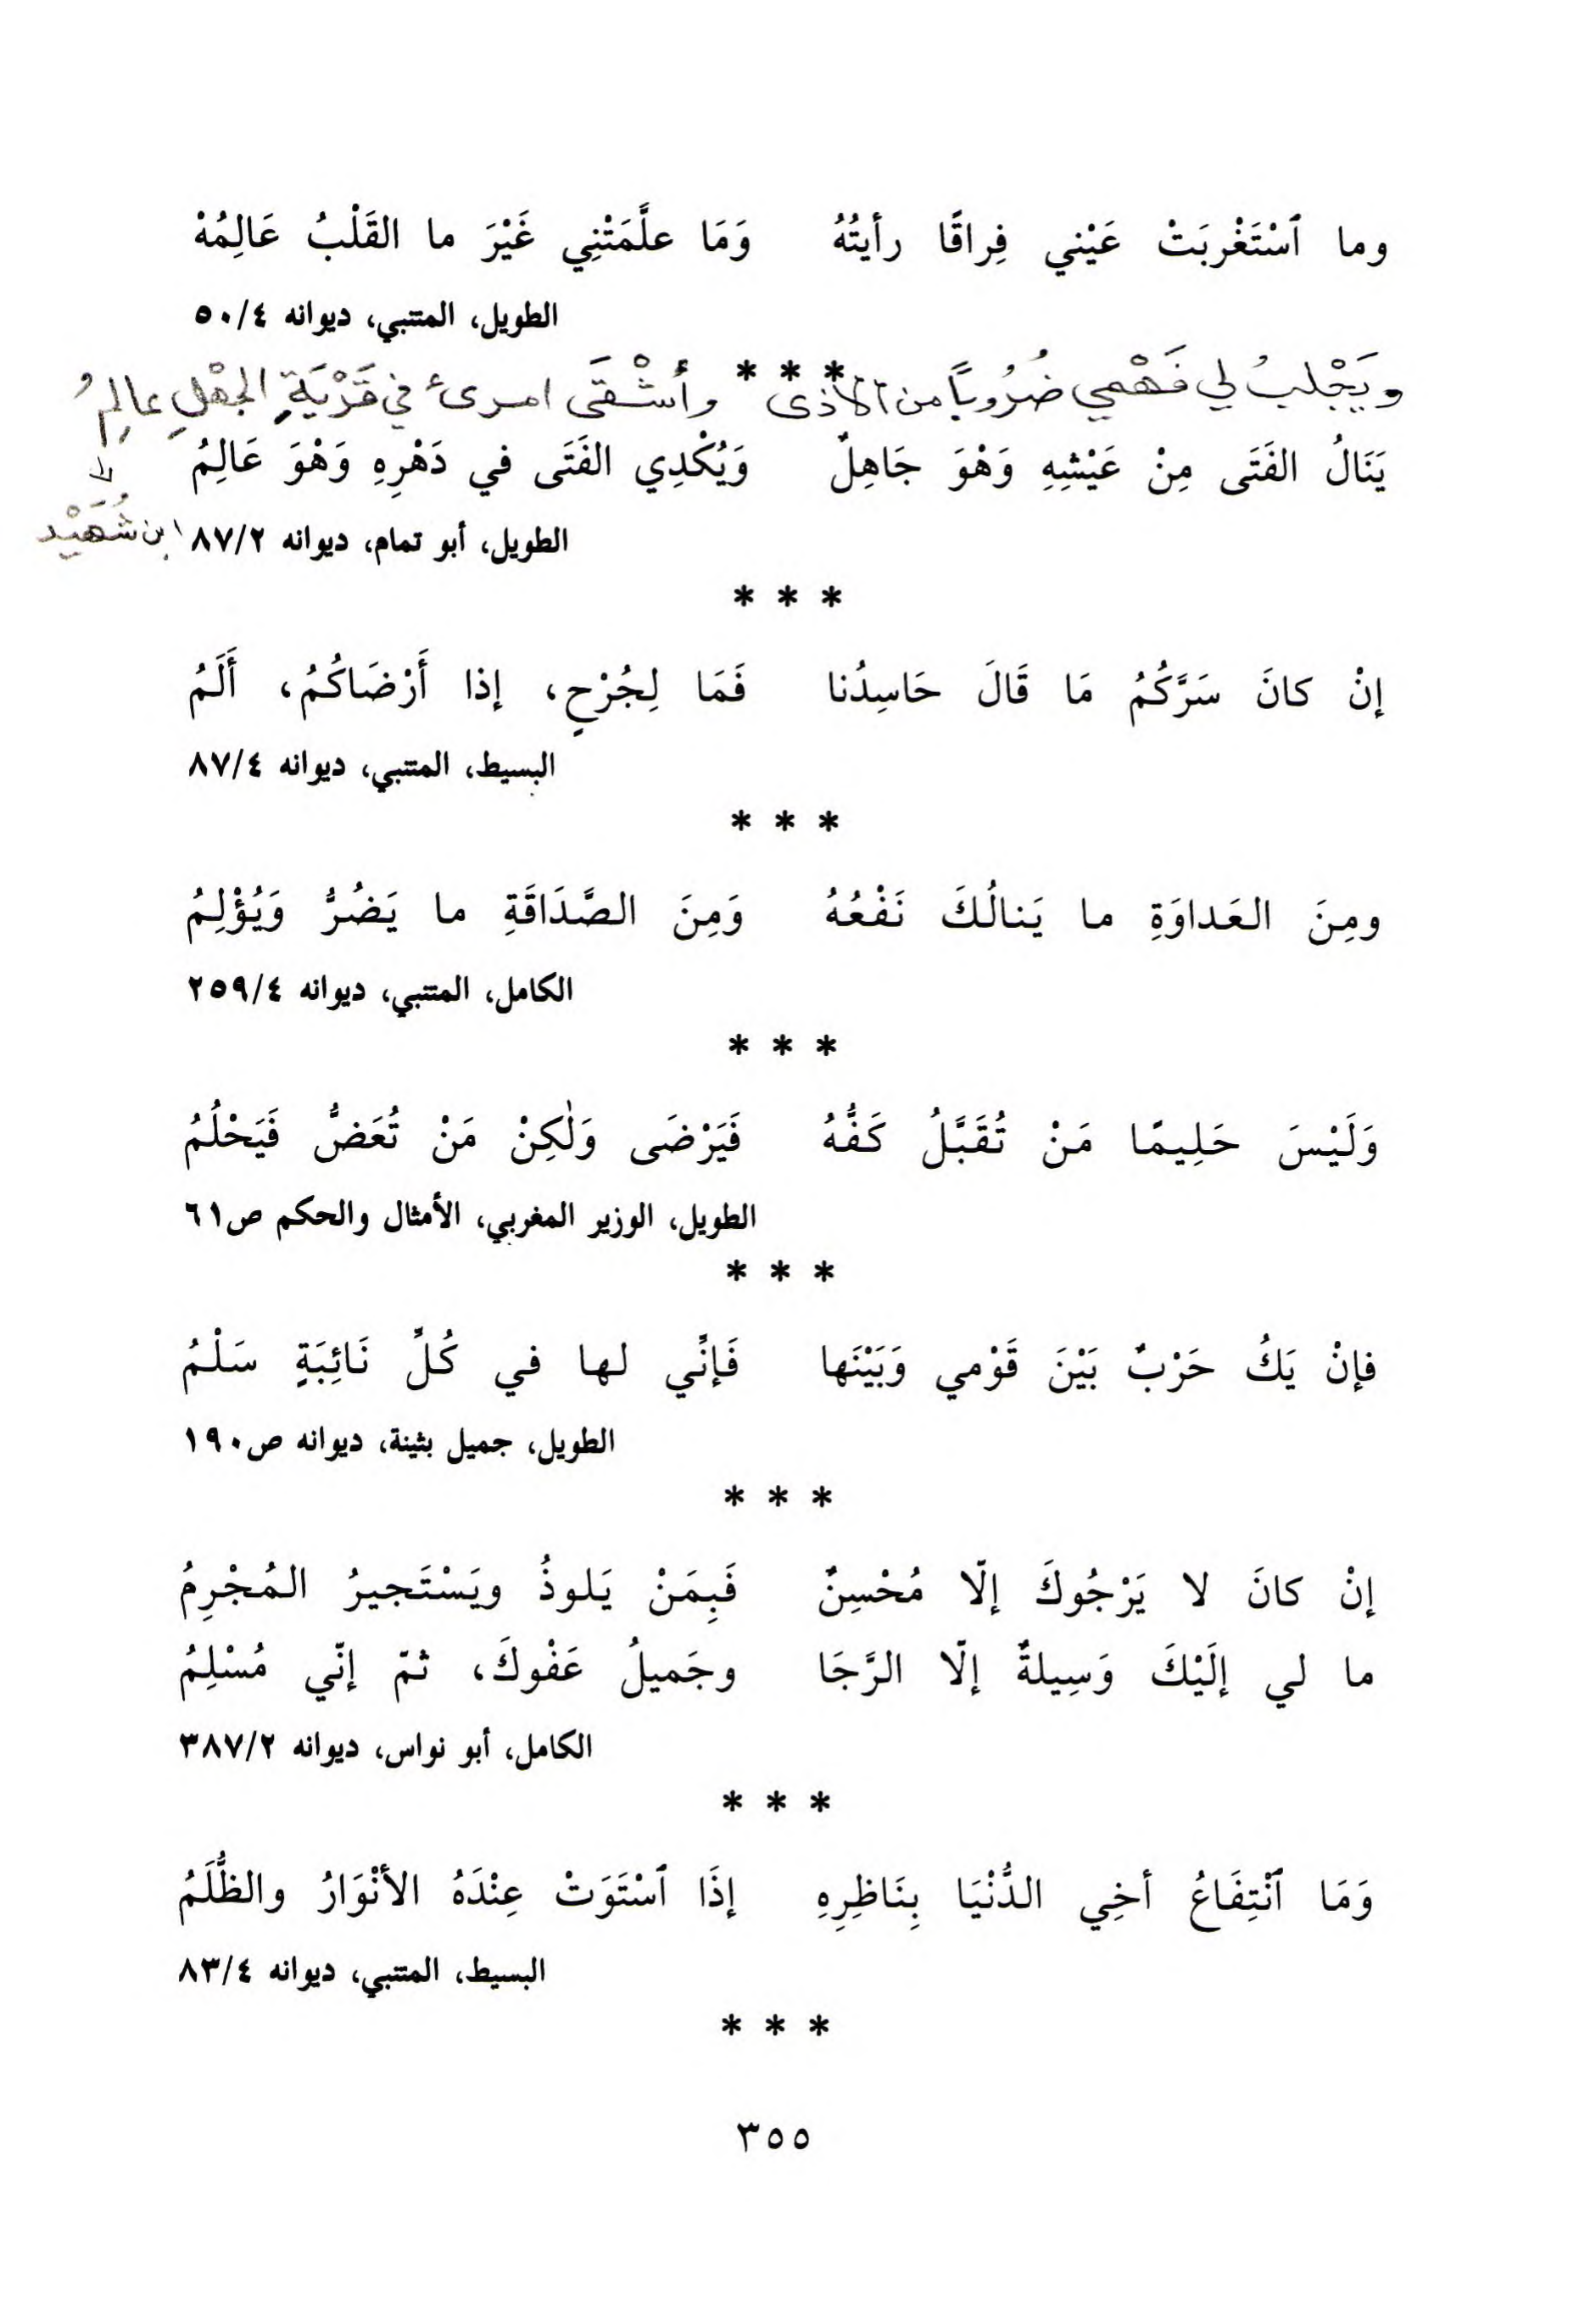 وما ٱسْتَغْربَتْ عَيْني فِراقًا رأيتُهُ وَمَا علَّمَتْنِي غَيْرَ ما القَلْبُ عَالِمُهْ
الطويل، المتنبي، ديوانه ٥٠/٤
* * *
ويَجْلبُ لي فَهْمي ضُرُوباً من الأذى وأشْقَى امرئ في قَرْيَةِ الجهْلِ عالِمُ
ابن شُهَيْد
يَنَالُ الفَتَى مِنْ عَيْشِهِ وَهْوَ جَاهِلٌ وَيُكْدِي الفَتَى في دَهْرِهِ وَهْوَ عَالِمُ
الطويل، أبو تمام، ديوانه ٨٧/٢
* * *
إنْ كانَ سَرَّكُمُ مَا قَالَ حَاسِدُنا فَمَا لِجُرْحٍ، إذا أَرْضَاكُمُ، أَلَمُ
البسيط، المتنبي، ديوانه ٨٧/٤
* * *
ومِنَ العَداوَةِ ما يَنالُكَ نَفْعُهُ وَمِنَ الصَّدَاقَةِ ما يَضُرُّ وَيُؤْلِمُ
الكامل، المتنبي، ديوانه ٢٥٩/٤
* * *
وَلَيْسَ حَلِيمًا مَنْ تُقَبَّلُ كَفُّهُ فَيَرْضَى وَلٰكِنْ مَنْ تُعَضُّ فَيَحْلُمُ
الطويل، الوزير المغربي، الأمثال والحكم ص٦١
* * *
فإنْ يَكُ حَرْبٌ بَيْنَ قَوْمي وَبَيْنَها فَإنِّي لها في كُلِّ نَائِبَةٍ سَلْمُ
الطويل، جميل بثينة، ديوانه ص١٩٠
* * *
إنْ كانَ لا يَرْجُوكَ إلّا مُحْسِنٌ فَبِمَنْ يَلوذُ ويَسْتَجيرُ المُجْرِمُ
ما لي إلَيْكَ وَسِيلةٌ إلّا الرَّجَا وجَميلُ عَفْوكَ، ثمّ إنّي مُسْلِمُ
الكامل، أبو نواس، ديوانه ٣٨٧/٢
* * *
وَمَا ٱنْتِفَاعُ أخِي الدُّنْيَا بِنَاظِرِهِ إذَا ٱسْتَوَتْ عِنْدَهُ الأنْوَارُ والظُّلَمُ
البسيط، المتنبي، ديوانه ٨٣/٤
* * *
٣٥٥